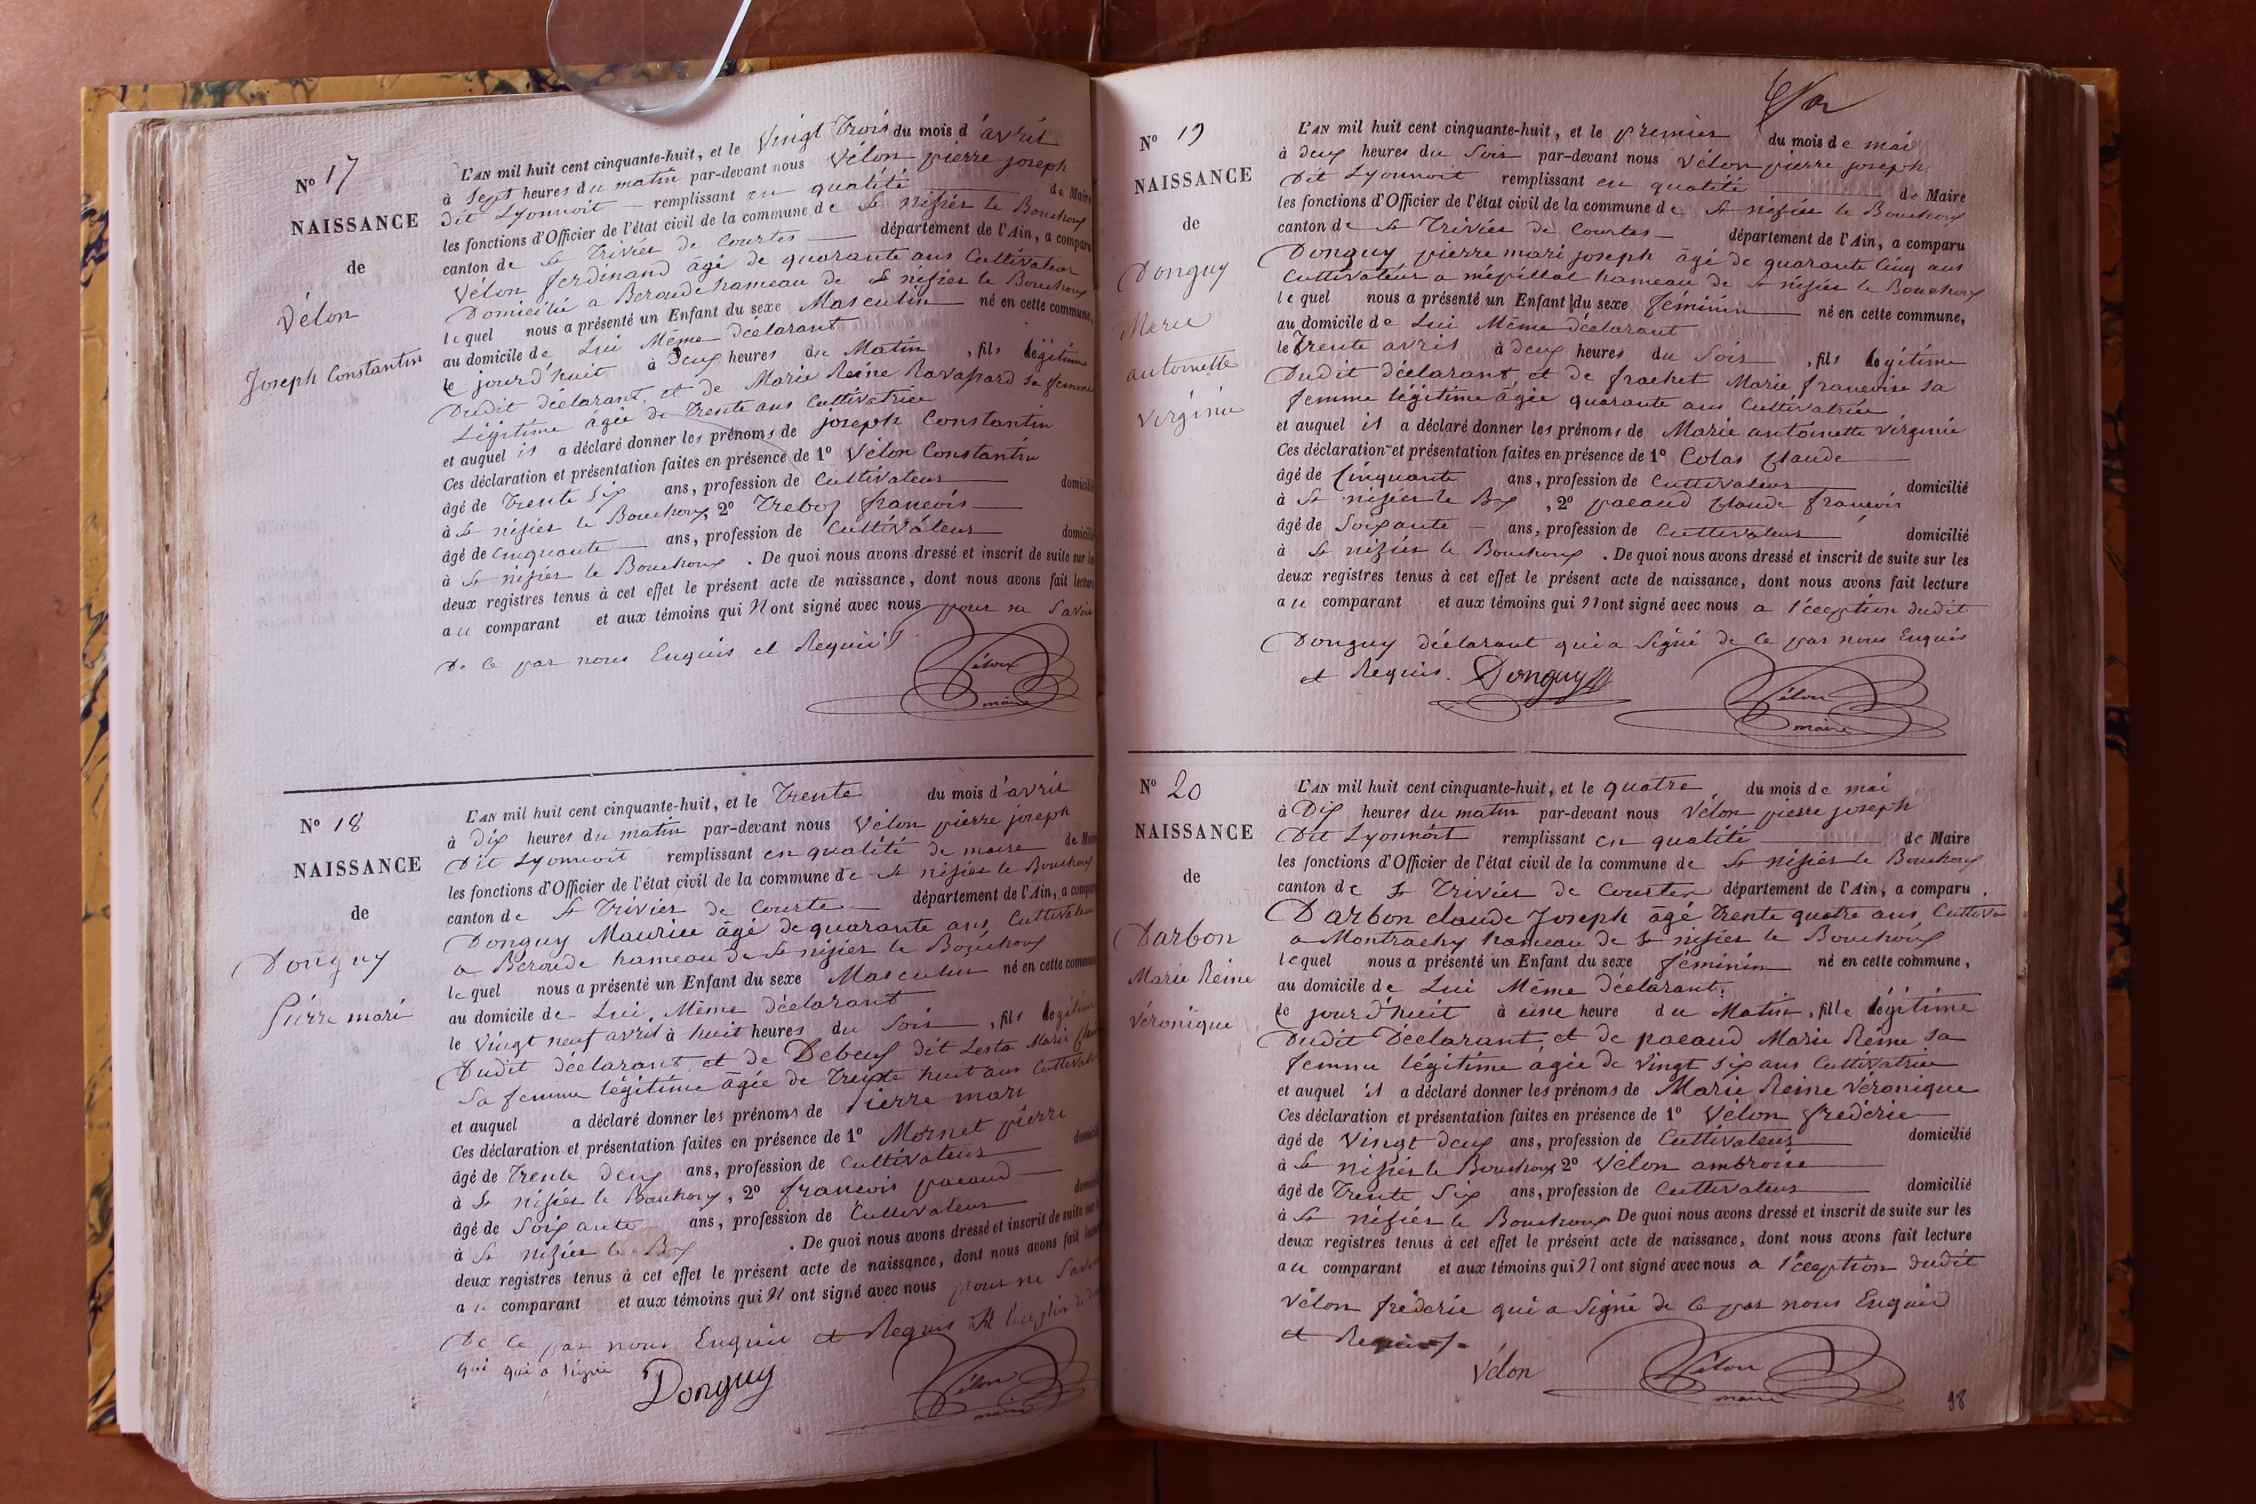 N° 17
NAISSANCE
de
Vélon
Joseph Constantin
L'AN mil huit cent cinquante-huit, et le Vingt Trois du mois d'avril
à Sept heures du matin par-devant nous Vélon pierre joseph
dit Lyonnoit remplissant en qualité de Maire
les fonctions d'Officier de l'état civil de la commune de St nisier le Bouchoux
canton de St Trivier de Courtes département de l'Ain, a comparu
Vélon ferdinand âgé de quarante ans Cultivateur
Domicilié a Beroude hameau de St nisier le Bouchoux
lequel nous a présenté un Enfant du sexe Masculin né en cette commune,
au domicile de Lui Même déclarant
le jourd'huit à Deux heures du Matin, fils légitime
Dudit déclarant, et de Marie Reine Ravassard sa femme
Légitime âgée de Trente ans Cultivatrice
et auquel il a déclaré donner les prénoms de joseph Constantin
Ces déclaration et présentation faites en présence de 1° Vélon Constantin
âgé de Trente Six ans, profession de Cultivateur domicilié
à St nisier le Bouchoux, 2° Treboz francois
âgé de Cinquante ans, profession de Cultivateur domicilié
à St nisier le Bouchoux. De quoi nous avons dressé et inscrit de suite sur les
deux registres tenus à cet effet le présent acte de naissance, dont nous avons fait lecture
au comparant et aux témoins qui N'ont signé avec nous pour ne Savoir
De Ce par nous Enquis et Requis
Vélon
maire
N° 18
NAISSANCE
de
Donguy
Pierre mari
L'AN mil huit cent cinquante-huit, et le Trente du mois d'avril
à Dix heures du matin par-devant nous Vélon pierre joseph
Dit Lyonnoit remplissant en qualité de maire de Maire
les fonctions d'Officier de l'état civil de la commune de St nisier le Bouchoux
canton de St Trivier de Courte département de l'Ain, a comparu
Donguy Maurice âgé de quarante ans Cultivateur
a Beroude hameau de St nisier le Bouchoux
lequel nous a présenté un Enfant du sexe Masculin né en cette commune
au domicile de Lui Même déclarant
le Vingt neuf avril à huit heures du Soir, fils légitime
Dudit déclarant et de Debeuf dit Lesta Marie
Sa femme légitime âgée de Trente huit ans Cultivatrice
et auquel a déclaré donner les prénoms de Pierre mari
Ces déclaration et présentation faites en présence de 1° Mornet pierre
âgé de Trente Deux ans, profession de Cultivateur domicilié
à St nisier le Bouchoux, 2° francois pacaud
âgé de Soixante ans, profession de Cultivateur domicilié
à St nisier le Bx. De quoi nous avons dressé et inscrit de suite sur les
deux registres tenus à cet effet le présent acte de naissance, dont nous avons fait lecture
au comparant et aux témoins qui N'ont signé avec nous pour ne Savoir
De Ce par nous Enquis et Requis A l'exeption de
qui qui a signé
Donguy
Vélon
maire
N° 19
NAISSANCE
de
Donguy
Marie
antoinette
Virginie
L'AN mil huit cent cinquante-huit, et le premier du mois de mai
à deux heures du Soir par-devant nous Vélon pierre joseph
Dit Lyonnoit remplissant en qualité de Maire
les fonctions d'Officier de l'état civil de la commune de St nisier le Bouchoux
canton de St Trivier de Courtes département de l'Ain, a comparu
Donguy pierre mari joseph âgé de quarante Cinq ans
Cultivateur a mépillat hameau de St nisier le Bouchoux
lequel nous a présenté un Enfant du sexe féminin né en cette commune,
au domicile de Lui Même déclarant
le Trente avril à deux heures du Soir, fils légitime
Dudit déclarant, et de frachet Marie francoise sa
femme légitime âgée quarante ans Cultivatrice
et auquel il a déclaré donner les prénoms de Marie antoinette Virginie
Ces déclaration et présentation faites en présence de 1° Colas Claude
âgé de Cinquante ans, profession de Cultivateur domicilié
à St nisier le Bx, 2° pacaud Claude francois
âgé de Soixante ans, profession de Cultivateur domicilié
à St nisier le Bouchoux. De quoi nous avons dressé et inscrit de suite sur les
deux registres tenus à cet effet le présent acte de naissance, dont nous avons fait lecture
au comparant et aux témoins qui N'ont signé avec nous a l'éception dudit
Donguy déclarant qui a Signé de Ce par nous Enquis
et Requis. Donguy
Vélon
maire
N° 20
NAISSANCE
de
Darbon
Marie Reine
Véronique
L'AN mil huit cent cinquante-huit, et le quatre du mois de mai
à Dix heures du matin par-devant nous Vélon pierre joseph
Dit Lyonnoit remplissant en qualité de Maire
les fonctions d'Officier de l'état civil de la commune de St nisier le Bouchoux
canton de St Trivier de Courtes département de l'Ain, a comparu
Darbon claude Joseph âgé Trente quatre ans, Cultiva
a Montrachy hameau de St nisier le Bouchoux
lequel nous a présenté un Enfant du sexe féminin né en cette commune,
au domicile de Lui Même Déclarant
le jourd'huit à une heure du Matin, fille légitime
Dudit Déclarant, et de pacaud Marie Reine sa
femme légitime âgée de Vingt Six ans Cultivatrice
et auquel il a déclaré donner les prénoms de Marie Reine Véronique
Ces déclaration et présentation faites en présence de 1° Vélon frédéric
âgé de Vingt Deux ans, profession de Cultivateur domicilié
à St nisier le Bouchoux 2° Vélon ambroise
âgé de Trente Six ans, profession de Cultivateur domicilié
à St nisier le Bouchoux De quoi nous avons dressé et inscrit de suite sur les
deux registres tenus à cet effet le présent acte de naissance, dont nous avons fait lecture
au comparant et aux témoins qui N'ont signé avec nous a l'éception dudit
Vélon fréderic qui a Signé de Ce par nous Enquis
et Requis
Vélon
Vélon
maire
98